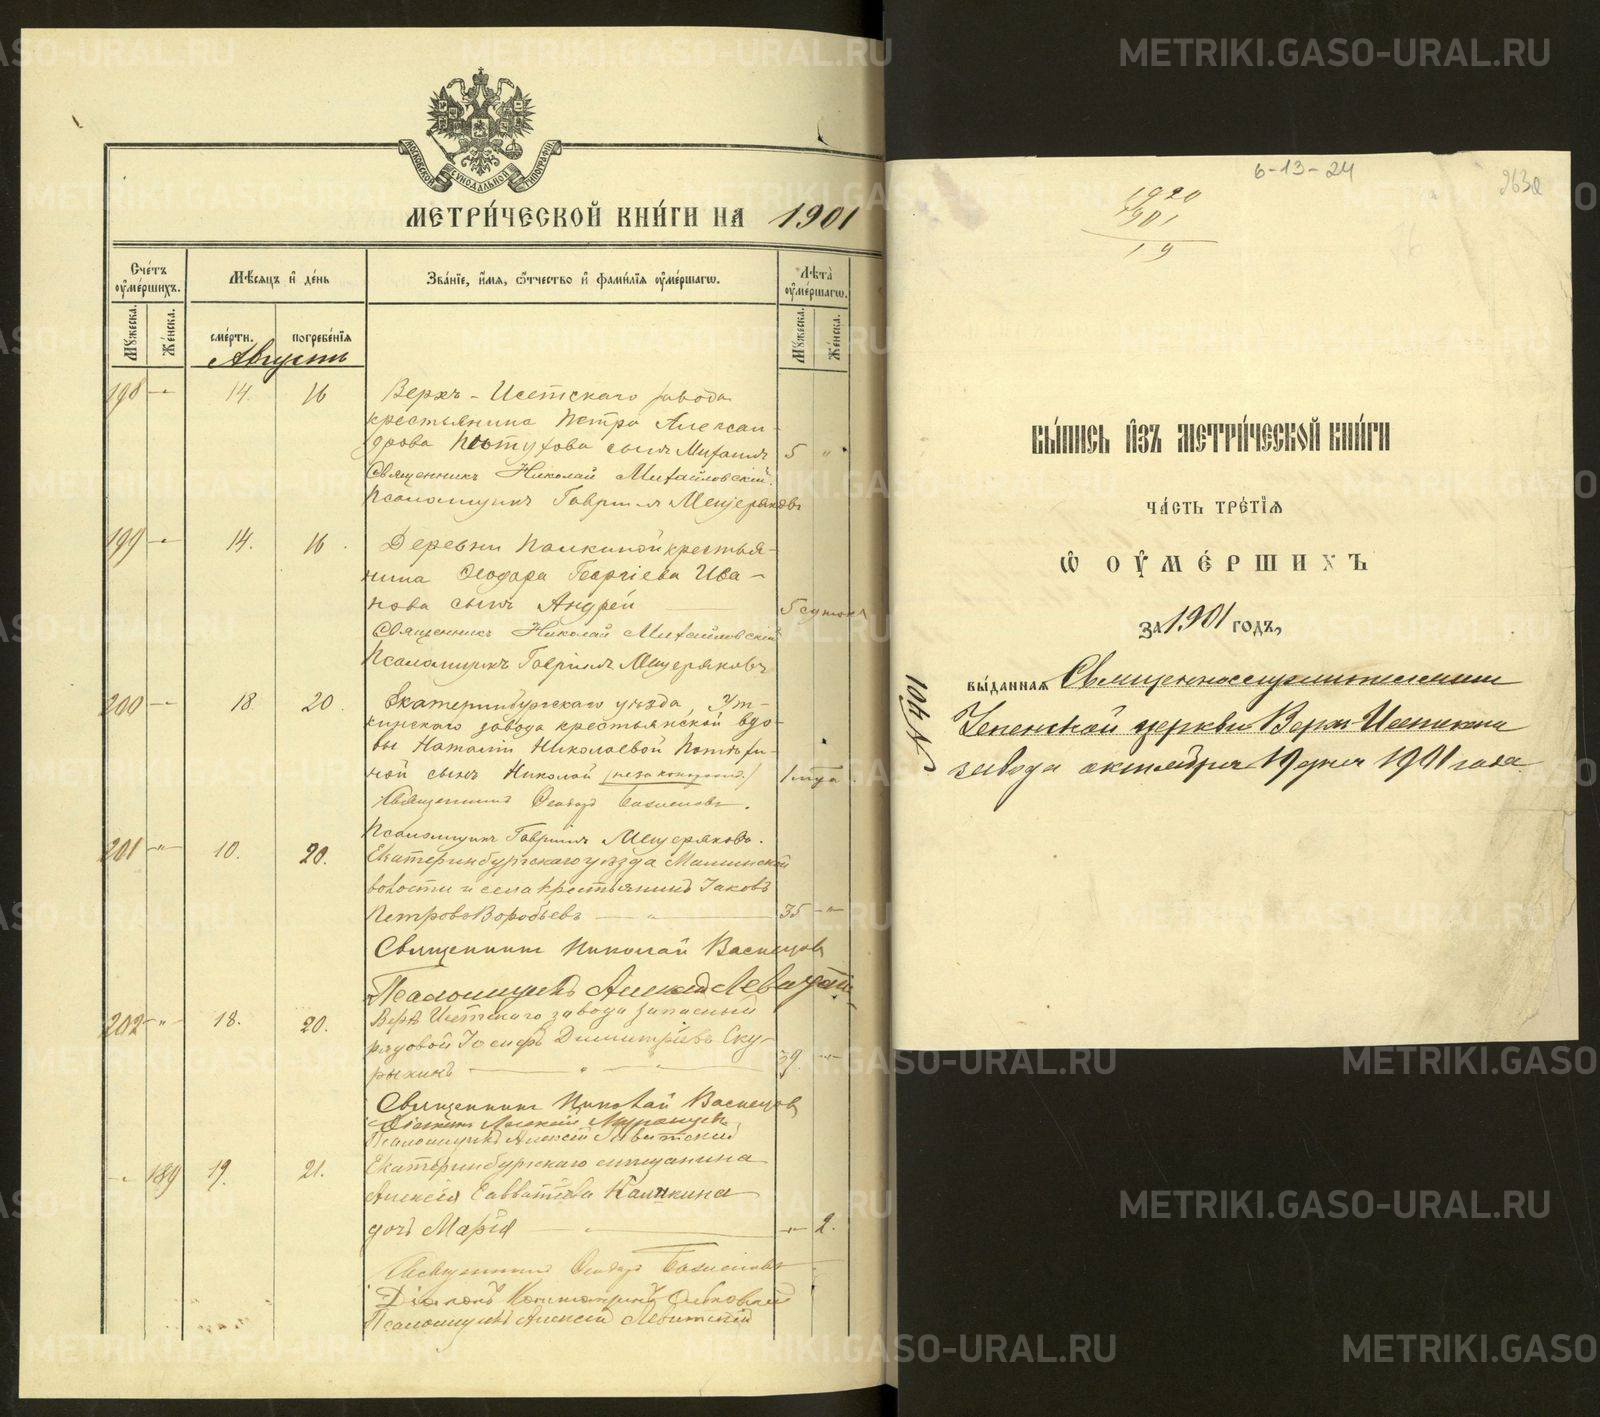 МОСКОВСКОЙ СУНОДАЛЬНОЙ ТИПОГРАФІИ
МЕТРИ́ЧЕСКОЙ КНИ́ГИ НА 1901
Сче́тъ ᲂу҆ме́ршихъ.
Мѣ́сяцъ и҆ де́нь
Зва́нїе, и҆́мя, ѻ҆́тчество и҆ фами́лїя ᲂу҆ме́ршагѡ.
Лѣ́та ᲂу҆ме́ршагѡ.
Мꙋ́жеска.
Же́нска.
сме́рти.
погребе́нїя
Мꙋ́жеска.
Же́нска.
Августъ
198 14. 16 Верхъ-Исетскаго завода
крестьянина Петра Алексан-
дрова Пастухова сынъ Михаилъ 5 "
Священникъ Николай Михайловскій.
Псаломщикъ Гавріилъ Мещеряковъ
199 14. 16. Деревни Палкиной крестья-
нина Ѳеодора Георгіева Ива-
нова сынъ Андрей 5 сутокъ
Священникъ Николай Михайловскій
Псаломщикъ Гавріилъ Мещеряковъ
200 18. 20. Екатеринбургскаго уѣзда, Ут-
кинскаго завода крестьянской вдо-
вы Наталіи Николаевой
ной сынъ Николай (незаконнорожд.) 1
Священникъ Ѳеодоръ
Псаломщикъ Гавріилъ Мещеряковъ.
201 10. 20. Екатеринбургскаго уѣзда Маминской
волости и села крестьянинъ Іаковъ
Петровъ Воробьевъ 35
Священникъ Николай Васнецовъ
Псаломщикъ Алексій Левитскій
202 18. 20. Верхъ Исетскаго завода запасный
рядовой Іосифъ Димитріевъ Ску-
рыкинъ 39.
Священникъ Николай Васнецовъ
Діаконъ Алексій
Псаломщикъ Алексій Левитскій
189 19. 21. Екатеринбургскаго мѣщанина
Алексія Савватіева Калинкина
дочь Марія 2.
Священникъ Ѳеодоръ
Діаконъ
Псаломщикъ Алексій Левитскій
6-13-24
963а
1920
1901
19
ВЫ́ПИСЬ И҆́ЗЪ МЕТРИ́ЧЕСКОЙ КНИ́ГИ
ЧА́СТЬ ТРЕ́ТЇЯ
Ѡ҆ ОУ҆МЕ́РШИХЪ
ЗА 1901 ГО́ДЪ,
ВЫ́ДАННАЯ Священнослужителями
Успенской церкви Верхъ-Исетскаго
завода октября 19 дня 1901 года
№ 401
METRIKI.GASO-URAL.RU